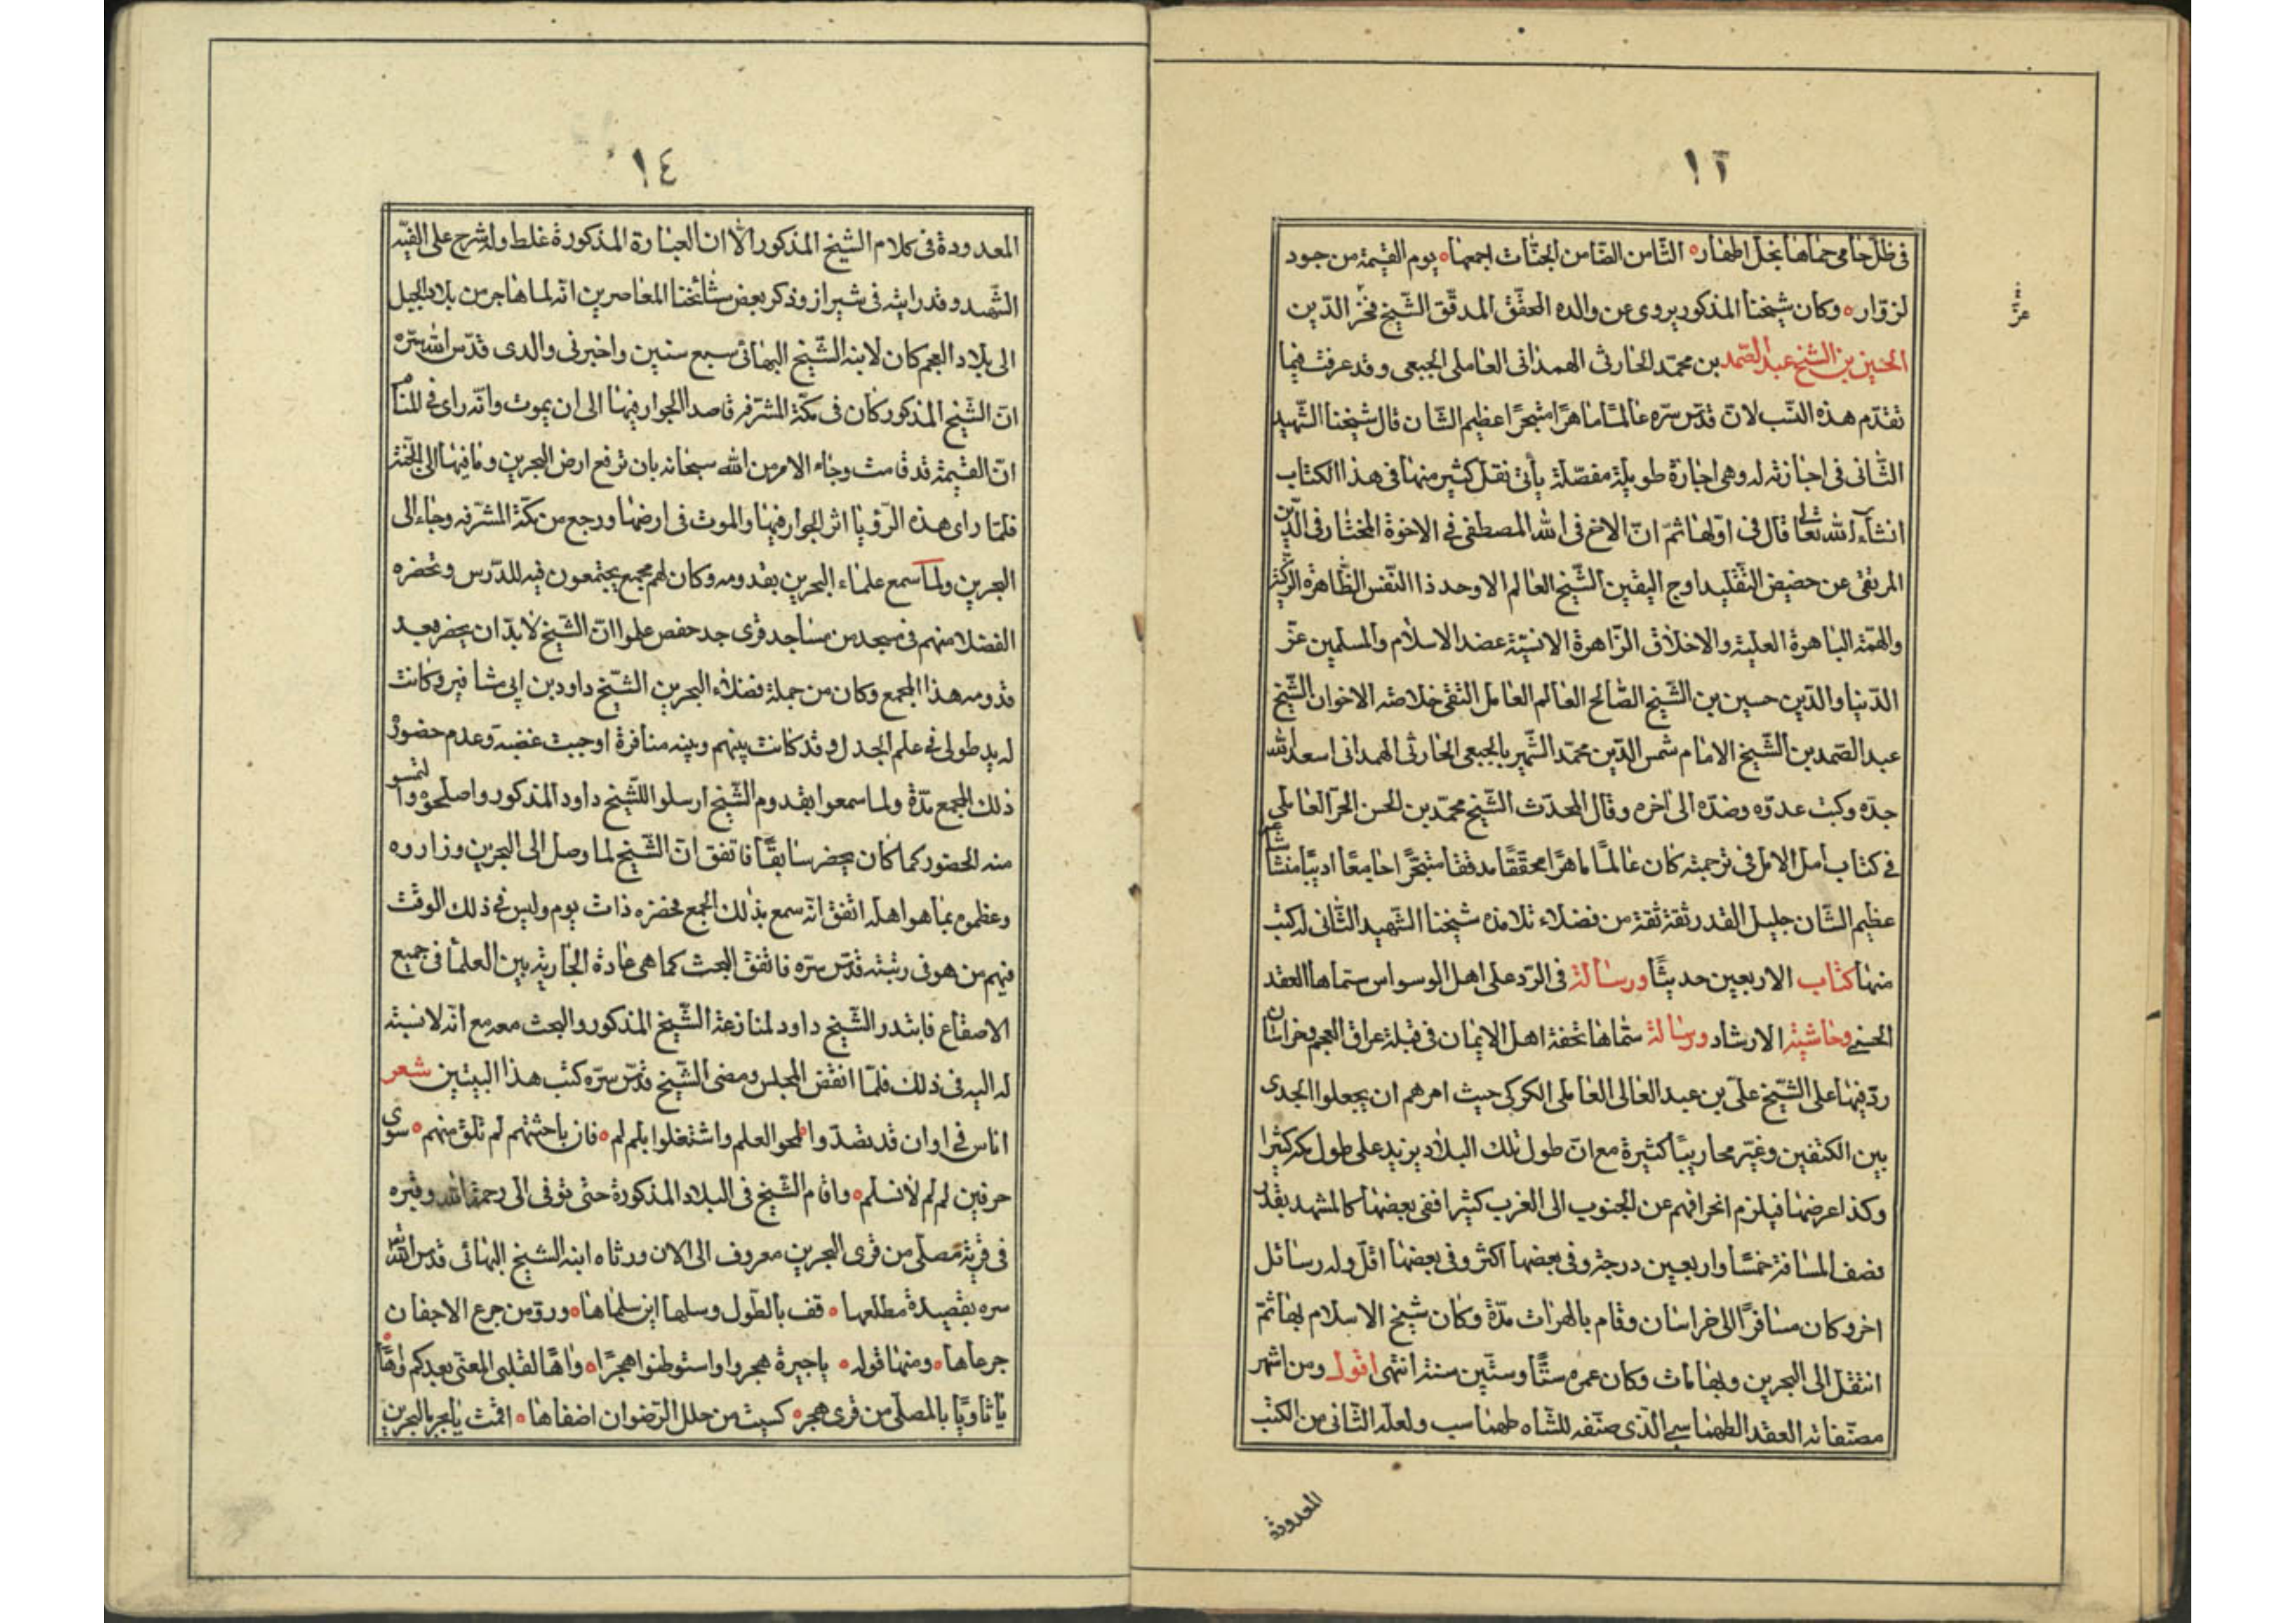 ١٣
في ظل حامي حماها نجل اطهار الثامن الضامن الجنات اجمعها يوم القيمة من جود
لزوار وكان شيخنا المذكور يروى عن والده المحقق المدقق الشيخ فخر الدين
الحسين بن الشيخ عبد الصمد بن محمد الحارثى الهمدانى العاملى الجبعى وقد عرفت فيما
تقدم هذه النسب لان قدس سره عالمًا ماهرًا متبحرًا عظيم الشان قال شيخنا الشهيد
الثانى فى اجازته له وهى اجازة طويلة مفصلة يأتى نقل كثير منها فى هذا الكتاب
انشاء الله تعالى قال فى اولها ثم ان الاخ فى الله المصطفى فى الاخوة المختار فى الدين
المرتقى عن حضيض التقليد اوج اليقين الشيخ العالم الاوحد ذا النفس الطاهرة الزكية
والهمة الباهرة العلية والاخلاق الزاهرة الانسية عضد الاسلام والمسلمين عز
الدنيا والدين حسين بن الشيخ الصالح العالم العامل التقى خلاصة الاخوان الشيخ
عبد الصمد بن الشيخ الامام شمس الدين محمد الشهير بالجبعى الحارثى الهمدانى اسعد الله
جده وكبت عدوه وضده الى اخره وقال المحدث الشيخ محمد بن الحسن الحر العاملي
في كتاب امل الامل فى ترجمته كان عالمًا ماهرًا محققًا مدققا متبحرًا جامعًا اديبًا منشأ شاعر
عظيم الشان جليل القدر ثقة ثقة من فضلاء تلامذه شيخنا الشهيد الثانى له كتب
منها كتاب الاربعين حديثًا ورسالة فى الرد على اهل الوسواس سماها العقد
الحسنى وحاشية الارشاد ورسالة سماها تحفة اهل الايمان فى قبلة عراق العجم وخراسان
رد فيها على الشيخ على بن عبد العالى العاملى الكركى حيث امرهم ان يجعلوا الجدى
بين الكتفين وغير محاريبًا كثيرة مع ان طول تلك البلاد يزيد على طول مكة كثيرا
وكذا عرضها فيلزم انحرافهم عن الجنوب الى الغرب كثيرا ففى بعضها كالمشهد بقدر
نصف المسافة خمسًا واربعين درجة وفى بعضها اكثر وفى بعضها اقل وله رسائل
اخر وكان مسافرًا الى خراسان وقام بالهرات مدة وكان شيخ الاسلام بها ثم
انتقل الى البحرين وبها مات وكان عمره ستًا وستين سنة انتهى اقول ومن اشهر
مصنفاته العقد الطهماسبي الذى صنفه للشاه طهماسب ولعله الثانى من الكتب
المعدودة
١٤
المعدودة فى كلام الشيخ المذكور الا ان العبارة المذكورة غلط وله شرح على الفية
الشهيد وقد رايته فى شيراز وذكر بعض مشائخنا المعاصرين انه لما هاجر من بلاد الجبل
الى بلاد العجم كان لابنه الشيخ البهائى سبع سنين واخبرنى والدى قدس الله سره
ان الشيخ المذكور كان فى مكة المشرفة قاصدا الجوار فيها الى ان يموت وانه راى في المنام
ان القيمة قد قامت وجاء الامر من الله سبحانه بان ترفع ارض البحرين وما فيها الى الجنة
فلما راى هذه الرؤيا اثر الجوار فيها والموت فى ارضها ورجع من مكة المشرفه وجاء الى
البحرين ولما سمع علماء البحرين بقدومه وكان لهم مجمع يجتمعون فيه للدرس وتحضره
الفضلا منهم فى مسجد من مساجد قرى جد حفص علموا ان الشيخ لا بد ان يحضر بعد
قدومه هذا المجمع وكان من جملة فضلاء البحرين الشيخ داود بن ابى شافير وكانت
له يد طولى فى علم الجدل وقد كانت بينهم وبينه منافرة اوجبت غضبه وعدم حضوره
ذلك المجمع مدة ولما سمعوا بقدوم الشيخ ارسلوا للشيخ داود المذكور واصلحوه والتمسو
منه الحضور كما كان يحضر سابقًا فاتفق ان الشيخ لما وصل الى البحرين وزاروه
وعظموه بما هو اهله اتفق انه سمع بذلك الجمع فحضره ذات يوم وليس فى ذلك الوقت
فيهم من هو فى رتبته قدس سره فاتفق البحث كما هى عادة الجارية بين العلمأ فى جميع
الاصقاع فابتدر الشيخ داود لمنازعة الشيخ المذكور والبحث معه مع انه لا نسبته
له اليه فى ذلك فلما انقض المجلس ومضى الشيخ قدس سره كتب هذا البيتين شعر
اناس فى اوان قد تصدوا لمحو العلم واشتغلوا بلم لم فان باحثتهم لم تلق منهم سوى
حرفين لم لم لا نسلم واقام الشيخ فى البلاد المذكورة حتى توفى الى رحمة الله وقبره
فى قرية مصلى من قرى البحرين معروف الى الان ورثاه ابنه الشيخ البهائى قدس الله
سره بقصيدة مطلعها قف بالطول وسلها اين سلماها ورو من جرع الاجفان
جرعاها ومنها قوله يا جيرة هجروا واستوطنوا هجرًا واهًا لقلبى المعنى بعدكم واهًا
يا ثاويًا بالمصلى من قرى هجر كسيت من حلل الرضوان اضفاها اقمت يا بحر بالبحرين